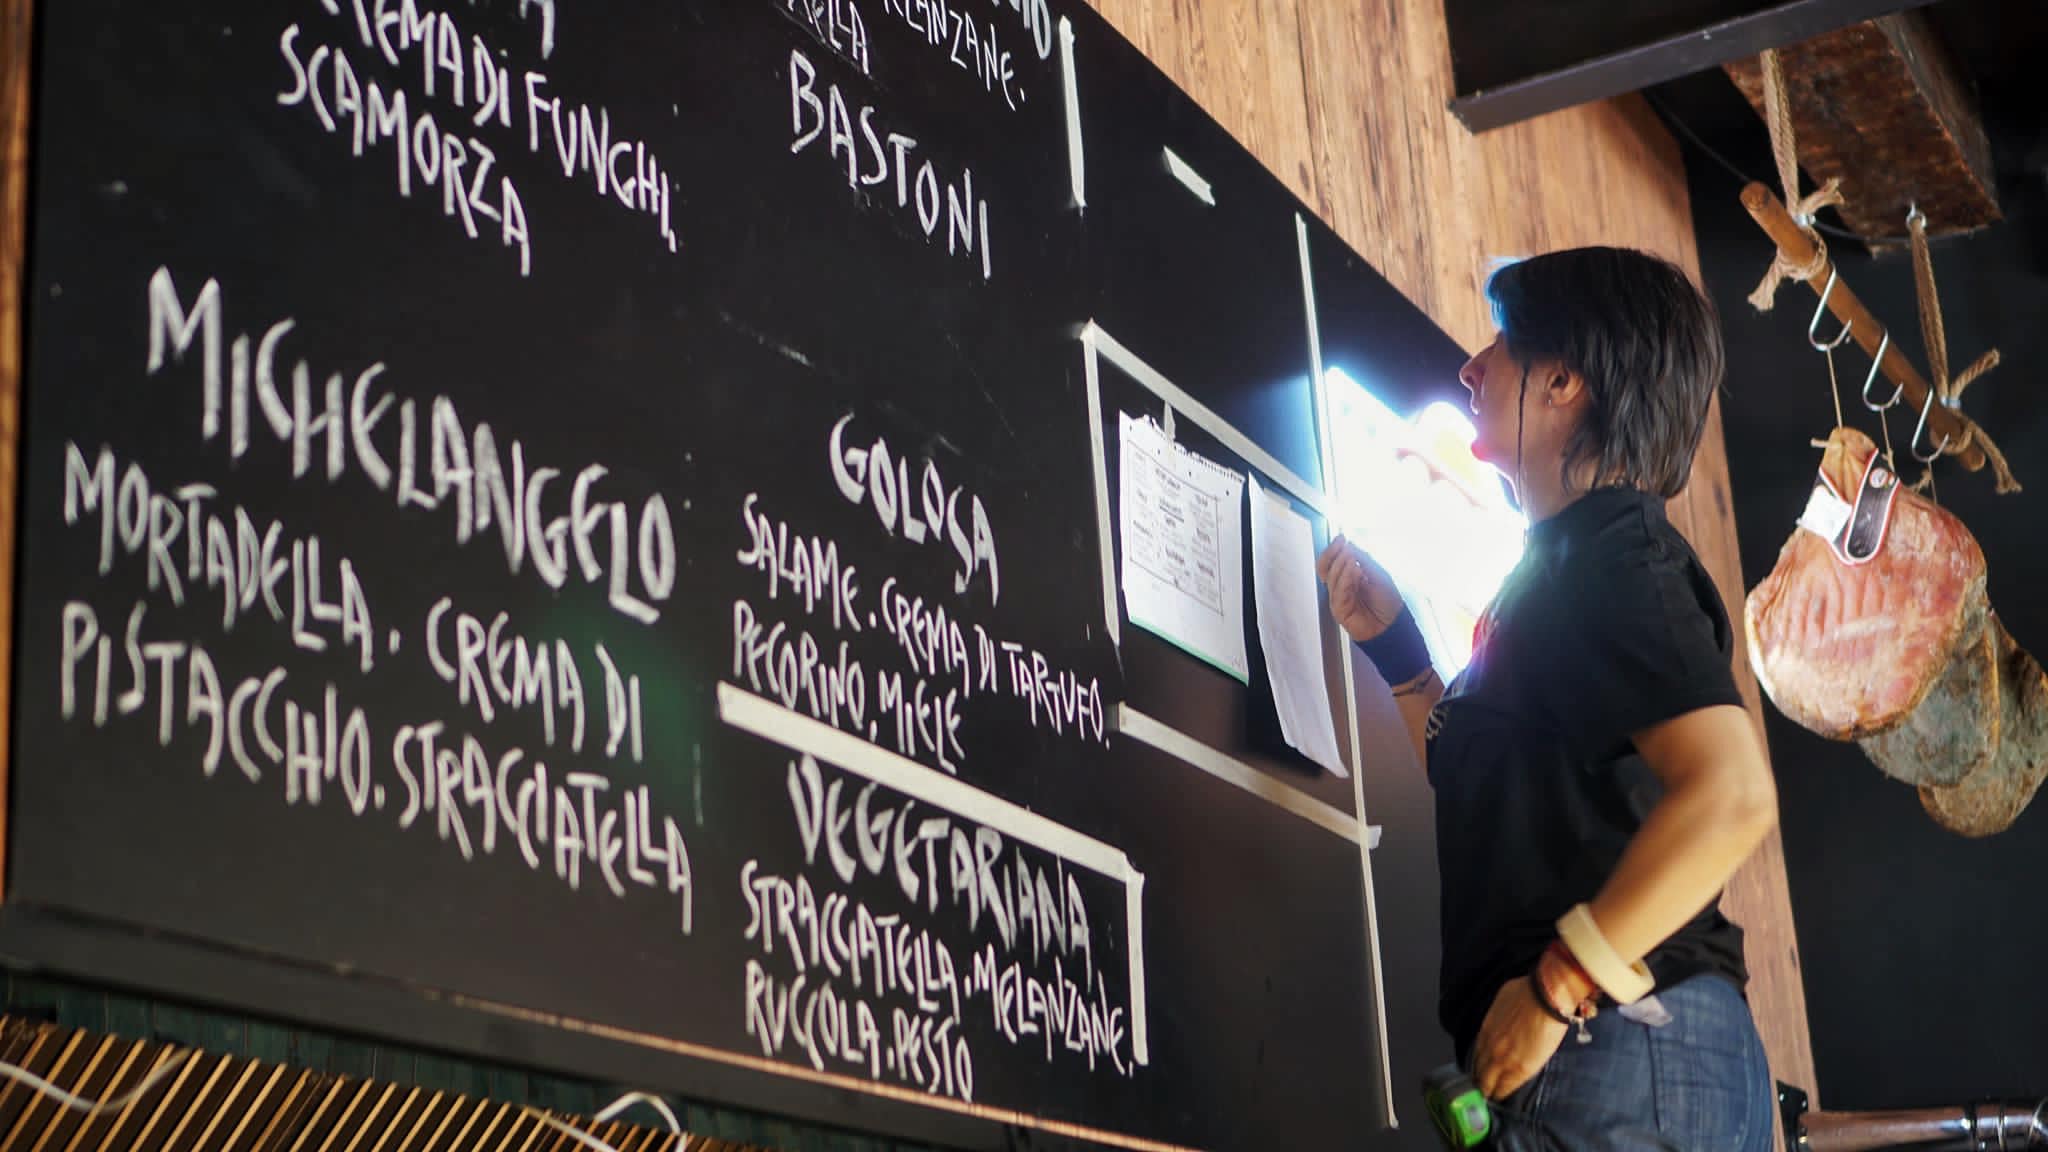 DI FUNGHI,
SCAMORZA
MICHELANGELO
MORTADELLA. CREMA DI
PISTACCHIO. STRACCIATELLA
BASTONI
GOLOSA
SALAME. CREMA DI TARTUFO.
PECORINO, MIELE
VEGETARIANA
STRACCIATELLA. MELANZANE.
RUCOLA. PESTO